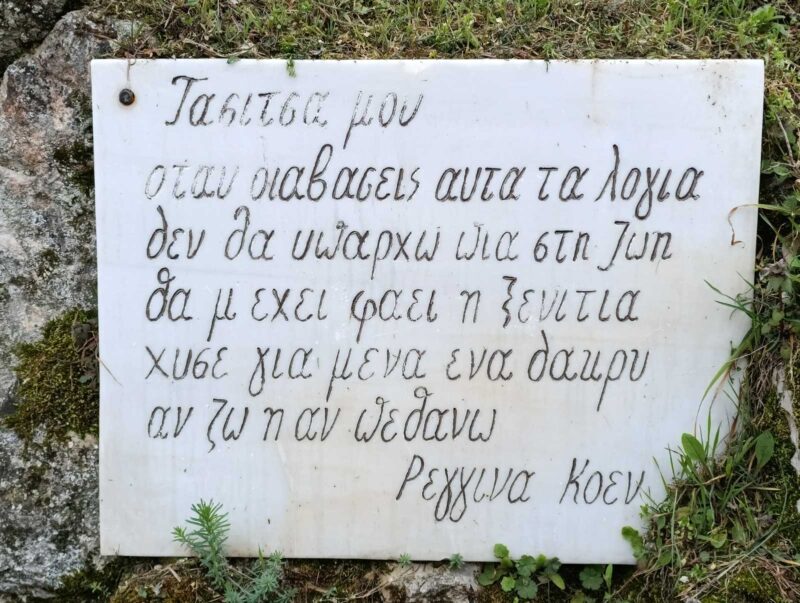 Τασιτσα μου
σταν διαβασεις αυτα τα λογια
δεν θα υπαρχω πια στη ζωη
θα μ εχει φαει η ξενιτια
χυσε για μενα ενα δακρυ
αν ζω η αν πεθανω
Ρεγγινα Κοεν